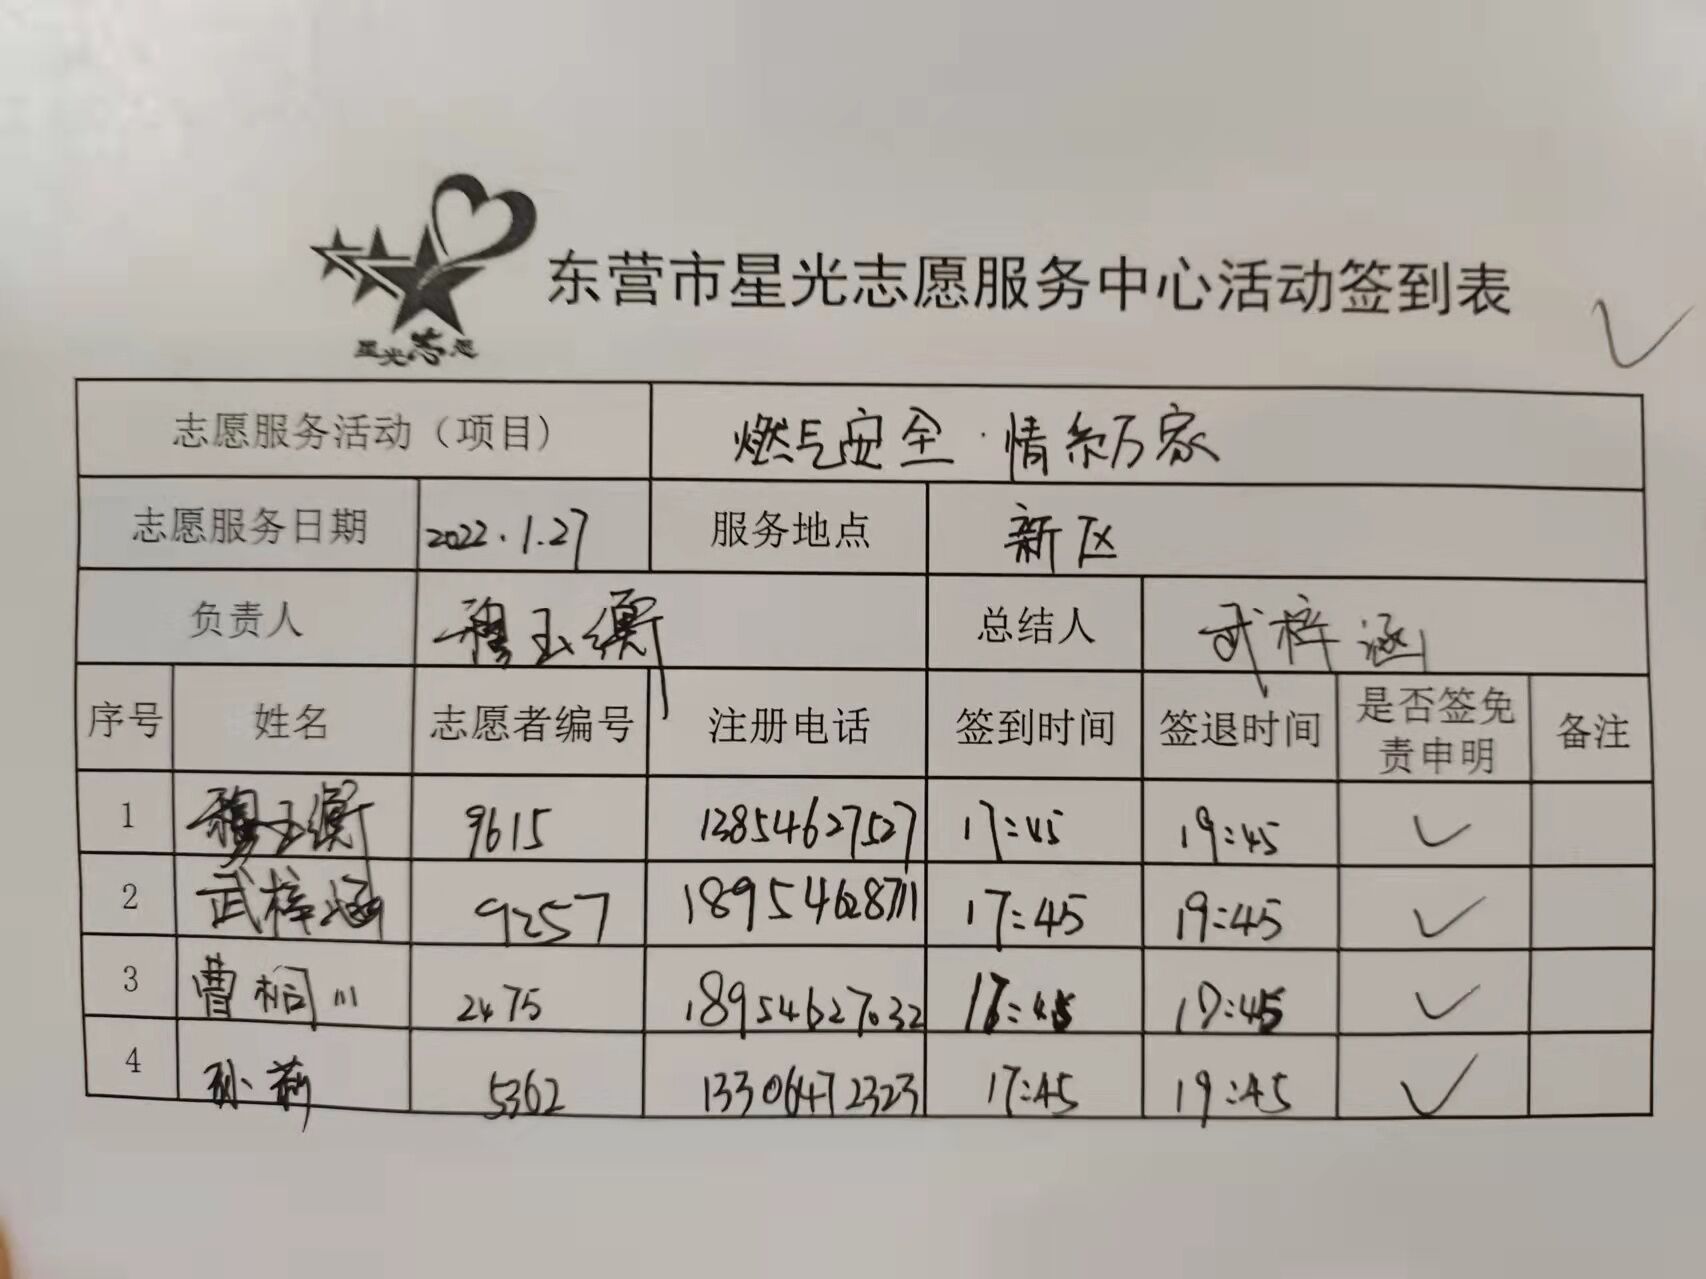 星光志愿
东营市星光志愿服务中心活动签到表
志愿服务活动（项目） 燃气安全·情系万家
志愿服务日期 2022.1.27 服务地点 新区
负责人 穆玉衡 总结人 武梓涵
序号 姓名 志愿者编号 注册电话 签到时间 签退时间 是否签免责申明 备注
1 穆玉衡 9615 13854627527 17:45 19:45 ✓
2 武梓涵 9257 18954628711 17:45 19:45 ✓
3 曹桐川 2475 18954627032 17:45 19:45 ✓
4 孙莉 5362 13306472323 17:45 19:45 ✓